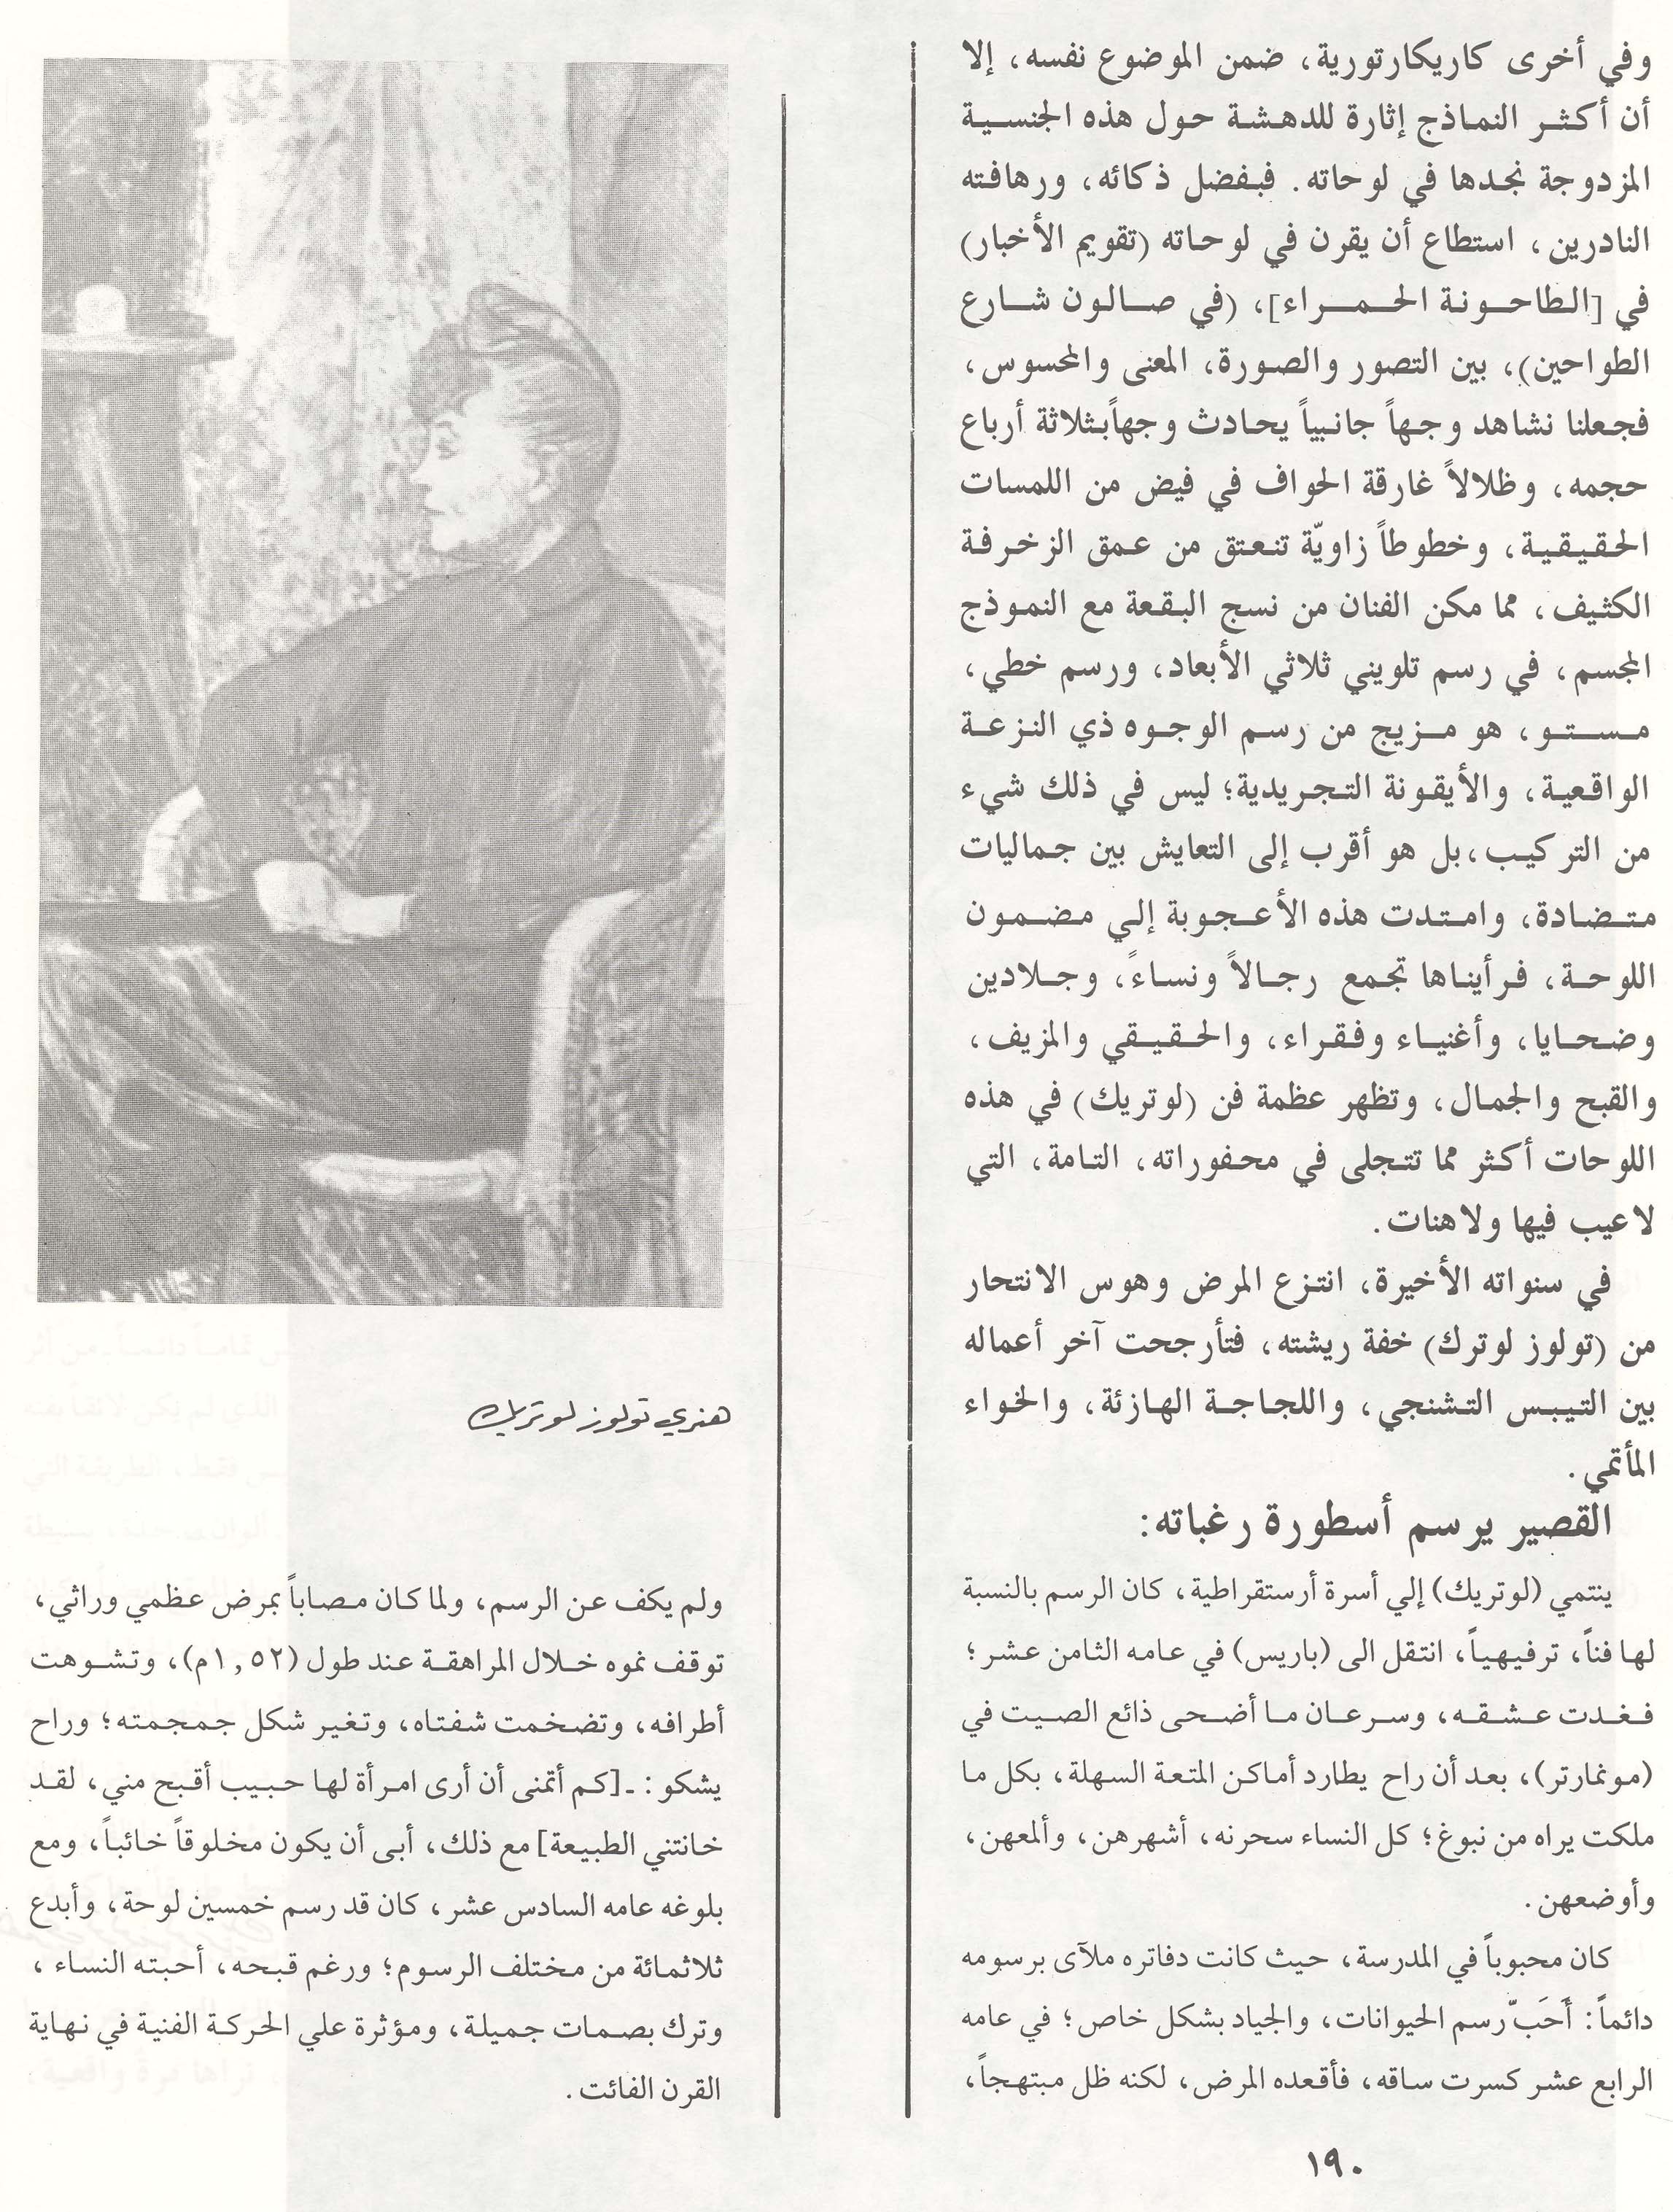 وفي أخرى كاريكارتورية، ضمن الموضوع نفسه، إلا
أن أكثر النماذج إثارة للدهشة حول هذه الجنسية
المزدوجة نجدها في لوحاته. فبفضل ذكائه، ورهافته
النادرين، استطاع أن يقرن في لوحاته (تقويم الأخبار)
في [الطاحونة الحمراء]، (في صالون شارع
الطواحين)، بين التصور والصورة، المعنى والمحسوس،
فجعلنا نشاهد وجهاً جانبياً يحادث وجهاًبثلاثة أرباع
حجمه، وظلالاً غارقة الحواف في فيض من اللمسات
الحقيقية، وخطوطاً زاويّة تنعتق من عمق الزخرفة
الكثيف، مما مكن الفنان من نسج البقعة مع النموذج
المجسم، في رسم تلويني ثلاثي الأبعاد، ورسم خطي،
مستو، هو مزيج من رسم الوجوه ذي النزعة
الواقعية، والأيقونة التجريدية؛ ليس في ذلك شيء
من التركيب،بل هو أقرب إلى التعايش بين جماليات
متضادة، وامتدت هذه الأعجوبة إلي مضمون
اللوحة، فرأيناها تجمع رجالاً ونساءً، وجلادين
وضحايا، وأغنياء وفقراء، والحقيقي والمزيف،
والقبح والجمال، وتظهر عظمة فن (لوتريك) في هذه
اللوحات أكثر مما تتجلى في محفوراته، التامة، التي
لاعيب فيها ولاهنات.
في سنواته الأخيرة، انتزع المرض وهوس الانتحار
من (تولوز لوترك) خفة ريشته، فتأرجحت آخر أعماله
بين التيبس التشنجي، واللجاجة الهازئة، والخواء
المأتمي.
القصير يرسم أسطورة رغباته:
ينتمي (لوتريك) إلي أسرة أرستقراطية، كان الرسم بالنسبة
لها فناً، ترفيهياً، انتقل الى (باريس) في عامه الثامن عشر؛
فغدت عشقه، وسرعان ما أضحى ذائع الصيت في
(مونمارتر)، بعد أن راح يطارد أماكن المتعة السهلة، بكل ما
ملكت يراه من نبوغ؛ كل النساء سحرنه، أشهرهن، وألمعهن،
وأوضعهن.
كان محبوباً في المدرسة، حيث كانت دفاتره ملآى برسومه
دائماً: أَحَبّ رسم الحيوانات، والجياد بشكل خاص؛ في عامه
الرابع عشر كسرت ساقه، فأقعده المرض، لكنه ظل مبتهجاً،
هنري تولوز لوتريك
ولم يكف عن الرسم، ولما كان مصاباً بمرض عظمي وراثي،
توقف نموه خلال المراهقة عند طول (١,٥٢م)، وتشوهت
أطرافه، وتضخمت شفتاه، وتغير شكل جمجمته؛ وراح
يشكو: ـ[كم أتمنى أن أرى امرأة لها حبيب أقبح مني، لقد
خانتني الطبيعة] مع ذلك، أبى أن يكون مخلوقاً خائباً، ومع
بلوغه عامه السادس عشر، كان قد رسم خمسين لوحة، وأبدع
ثلاثمائة من مختلف الرسوم؛ ورغم قبحه، أحبته النساء،
وترك بصمات جميلة، ومؤثرة علي الحركة الفنية في نهاية
القرن الفائت.
١٩٠